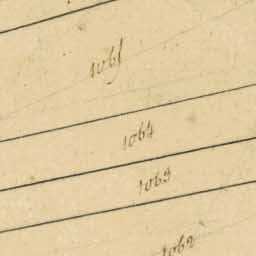 1065
1064
1063
1062